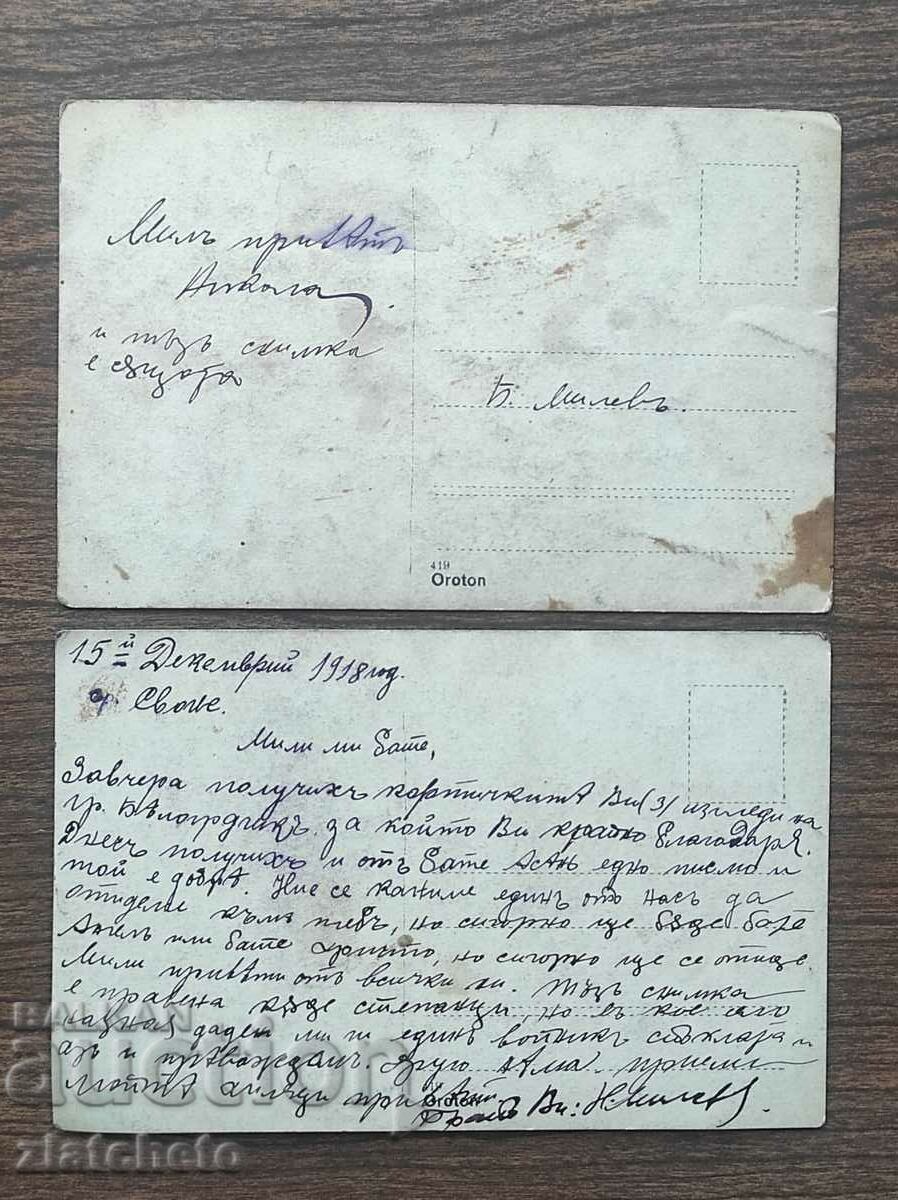 Милъ привѣтъ
Никола.
и тѫзъ снимка
е сѫщата
Б. Милевъ.
419
Oroton
15й Декемврий 1918 год.
гр. Своге.
Мили ми бате,
Завчера получихъ картичкитѣ Ви (3) изгледи на
гр. Бѣлоградчикъ, за който Ви кратко благодаря.
Днесъ получихъ и отъ бате Асѣн едно писмо и
той е добрѣ. Ние се каниме единъ отъ насъ да
отидеме къмъ тебъ, но сигорно ще бѫде
Ангелъ или бате Христо, но сигорно ще се отиде.
Мили привѣти отъ всички ни. Тѫзъ снимка
е правена кѫде но въ кое
даден ми ги единъ войникъ и
азъ и Друго нѣма. Приеми
моитѣ привѣти
Oroton
Братъ Ви: Н Милевъ.
BALKAN
auction
zlatcheto